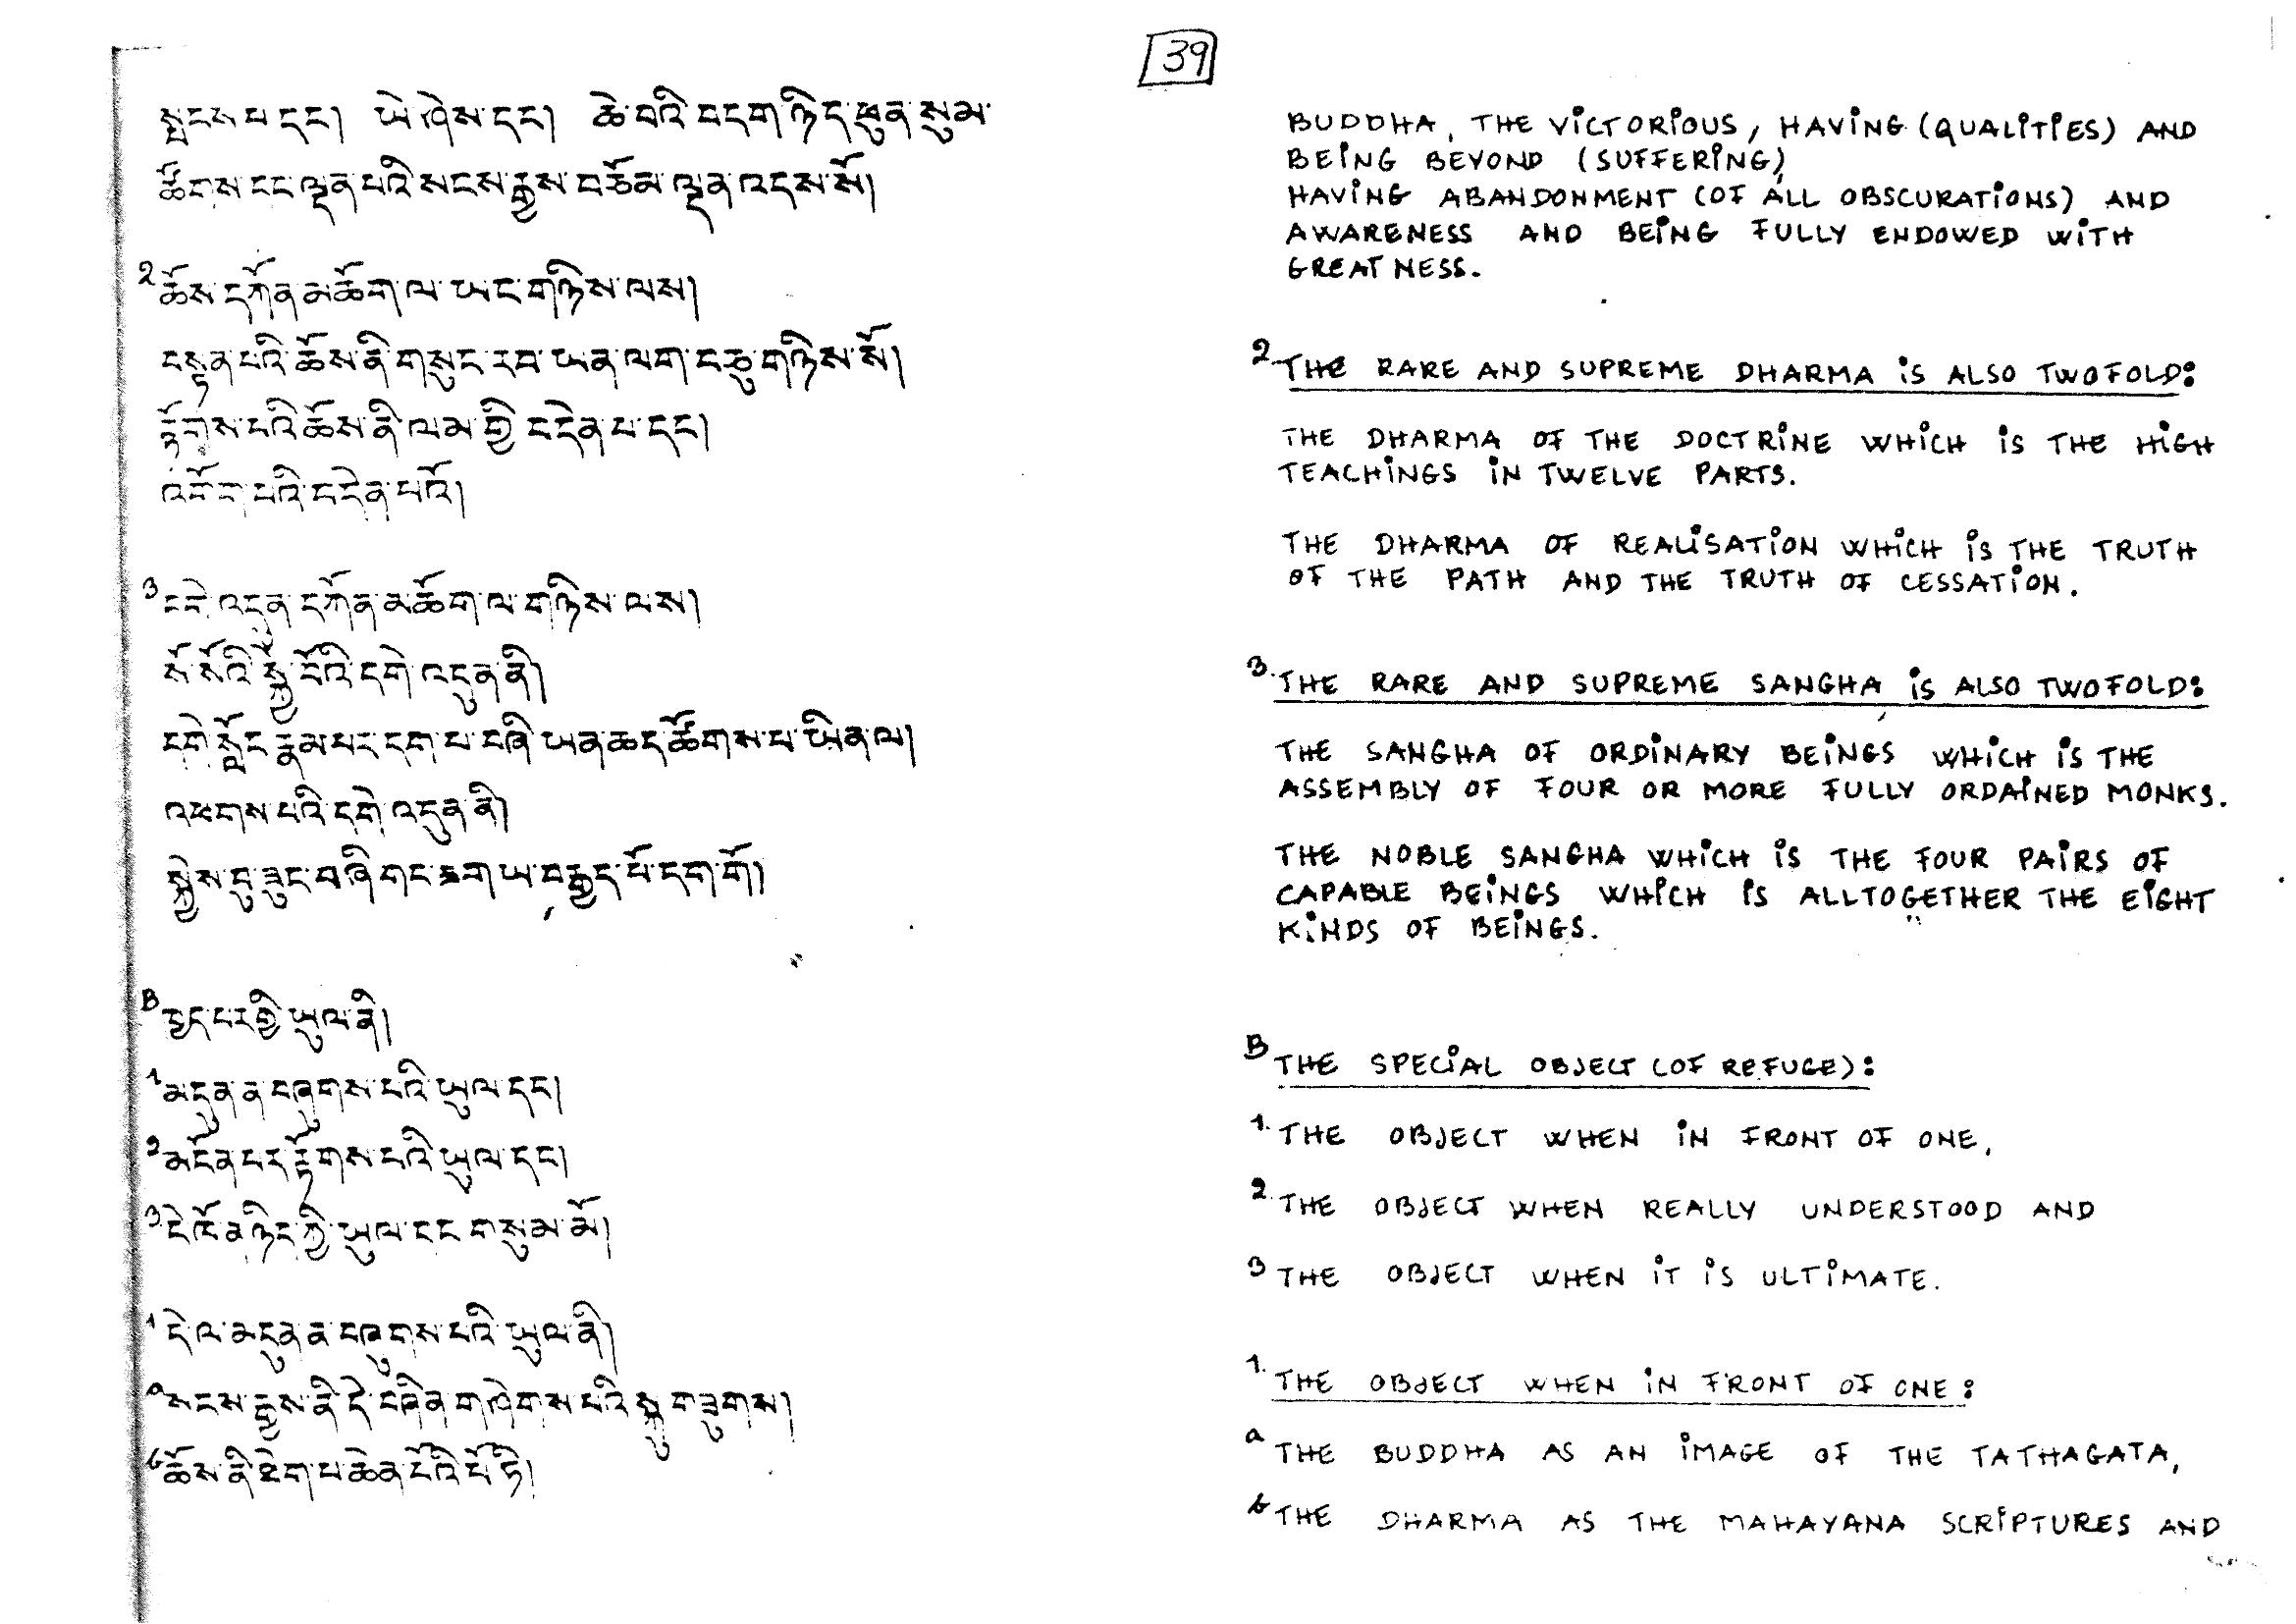 39
སྤངས་པ་དང༌། ཡེ་ཤེས་དང༌། ཆེ་བའི་བདག་ཉིད་ཕུན་སུམ་
ཚོགས་དང་ལྡན་པའི་སངས་རྒྱས་བཅོམ་ལྡན་འདས་སོ།
2 ཆོས་དཀོན་མཆོག་ལ་ཡང་གཉིས་ལས།
བསྟན་པའི་ཆོས་ནི་གསུང་རབ་ཡན་ལག་བཅུ་གཉིས་སོ།
རྟོགས་པའི་ཆོས་ནི་ལམ་གྱི་བདེན་པ་དང༌།
འགོག་པའི་བདེན་པའོ།
3 དགེ་འདུན་དཀོན་མཆོག་ལ་གཉིས་ལས།
སོ་སོའི་སྐྱེ་བོའི་དགེ་འདུན་ནི།
དགེ་སློང་རྣམ་པར་དག་པ་བཞི་ཡན་ཆད་ཚོགས་པ་ཡིན་ལ།
འཕགས་པའི་དགེ་འདུན་ནི།
སྐྱེས་བུ་ཟུང་བཞི་གང་ཟག་ཡ་བརྒྱད་པོ་དག་གོ།
B ཁྱད་པར་གྱི་ཡུལ་ནི།
1 མདུན་ན་བཞུགས་པའི་ཡུལ་དང༌།
2 མངོན་པར་རྟོགས་པའི་ཡུལ་དང༌།
3 དེ་ཁོ་ན་ཉིད་ཀྱི་ཡུལ་དང་གསུམ་མོ།
1 དེ་ལ་མདུན་ན་བཞུགས་པའི་ཡུལ་ནི།
a སངས་རྒྱས་ནི་དེ་བཞིན་གཤེགས་པའི་སྐུ་གཟུགས།
b ཆོས་ནི་ཐེག་པ་ཆེན་པོའི་པོ་ཏི།
BUDDHA, THE VICTORIOUS, HAVING (QUALITIES) AND
BEING BEYOND (SUFFERING),
HAVING ABANDONMENT (OF ALL OBSCURATIONS) AND
AWARENESS AND BEING FULLY ENDOWED WITH
GREATNESS.
2 THE RARE AND SUPREME DHARMA IS ALSO TWOFOLD:
THE DHARMA OF THE DOCTRINE WHICH IS THE HIGH
TEACHINGS IN TWELVE PARTS.
THE DHARMA OF REALISATION WHICH IS THE TRUTH
OF THE PATH AND THE TRUTH OF CESSATION.
3. THE RARE AND SUPREME SANGHA IS ALSO TWOFOLD:
THE SANGHA OF ORDINARY BEINGS WHICH IS THE
ASSEMBLY OF FOUR OR MORE FULLY ORDAINED MONKS.
THE NOBLE SANGHA WHICH IS THE FOUR PAIRS OF
CAPABLE BEINGS WHICH IS ALLTOGETHER THE EIGHT
KINDS OF BEINGS.
B THE SPECIAL OBJECT (OF REFUGE):
1. THE OBJECT WHEN IN FRONT OF ONE,
2. THE OBJECT WHEN REALLY UNDERSTOOD AND
3 THE OBJECT WHEN IT IS ULTIMATE.
1. THE OBJECT WHEN IN FRONT OF ONE:
a THE BUDDHA AS AN IMAGE OF THE TATHAGATA,
b THE DHARMA AS THE MAHAYANA SCRIPTURES AND